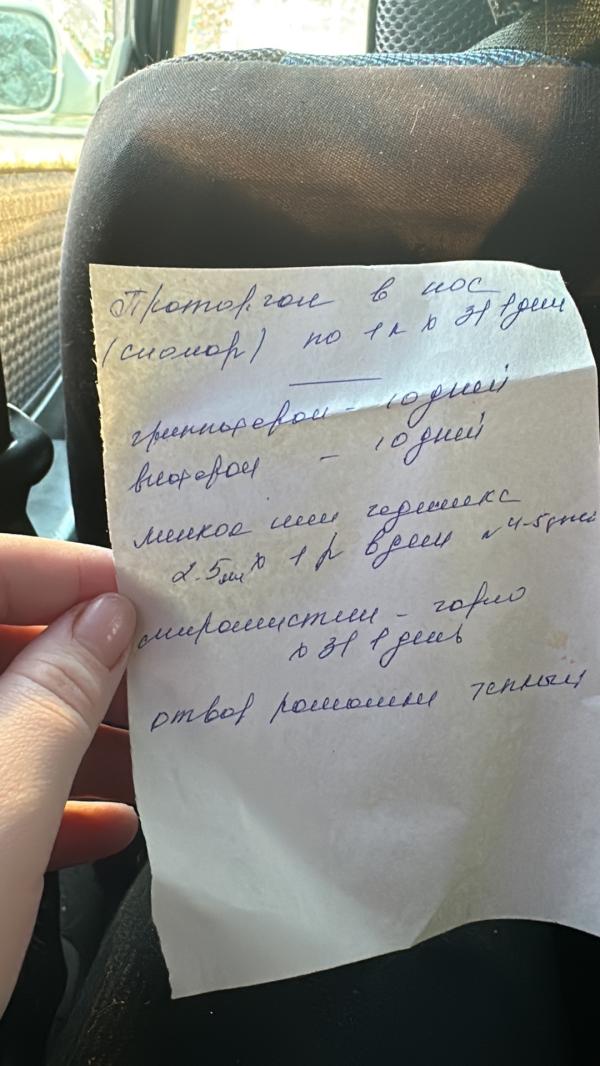 Протаргол в нос
(сиалор) по 1 к х 3 р в день
гриппферон - 10 дней
виферон - 10 дней
или
2.5 мл х 1 р в день 4-5 дней
мирамистин - горло
х 3 р в день
отвар ромашки теплый